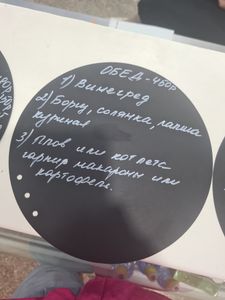 ОБЕД - 450р
1) Винегред
2) Борщ, солянка, лапша
куриная
3) Плов или котлета
гарнир макароны или
картофель.